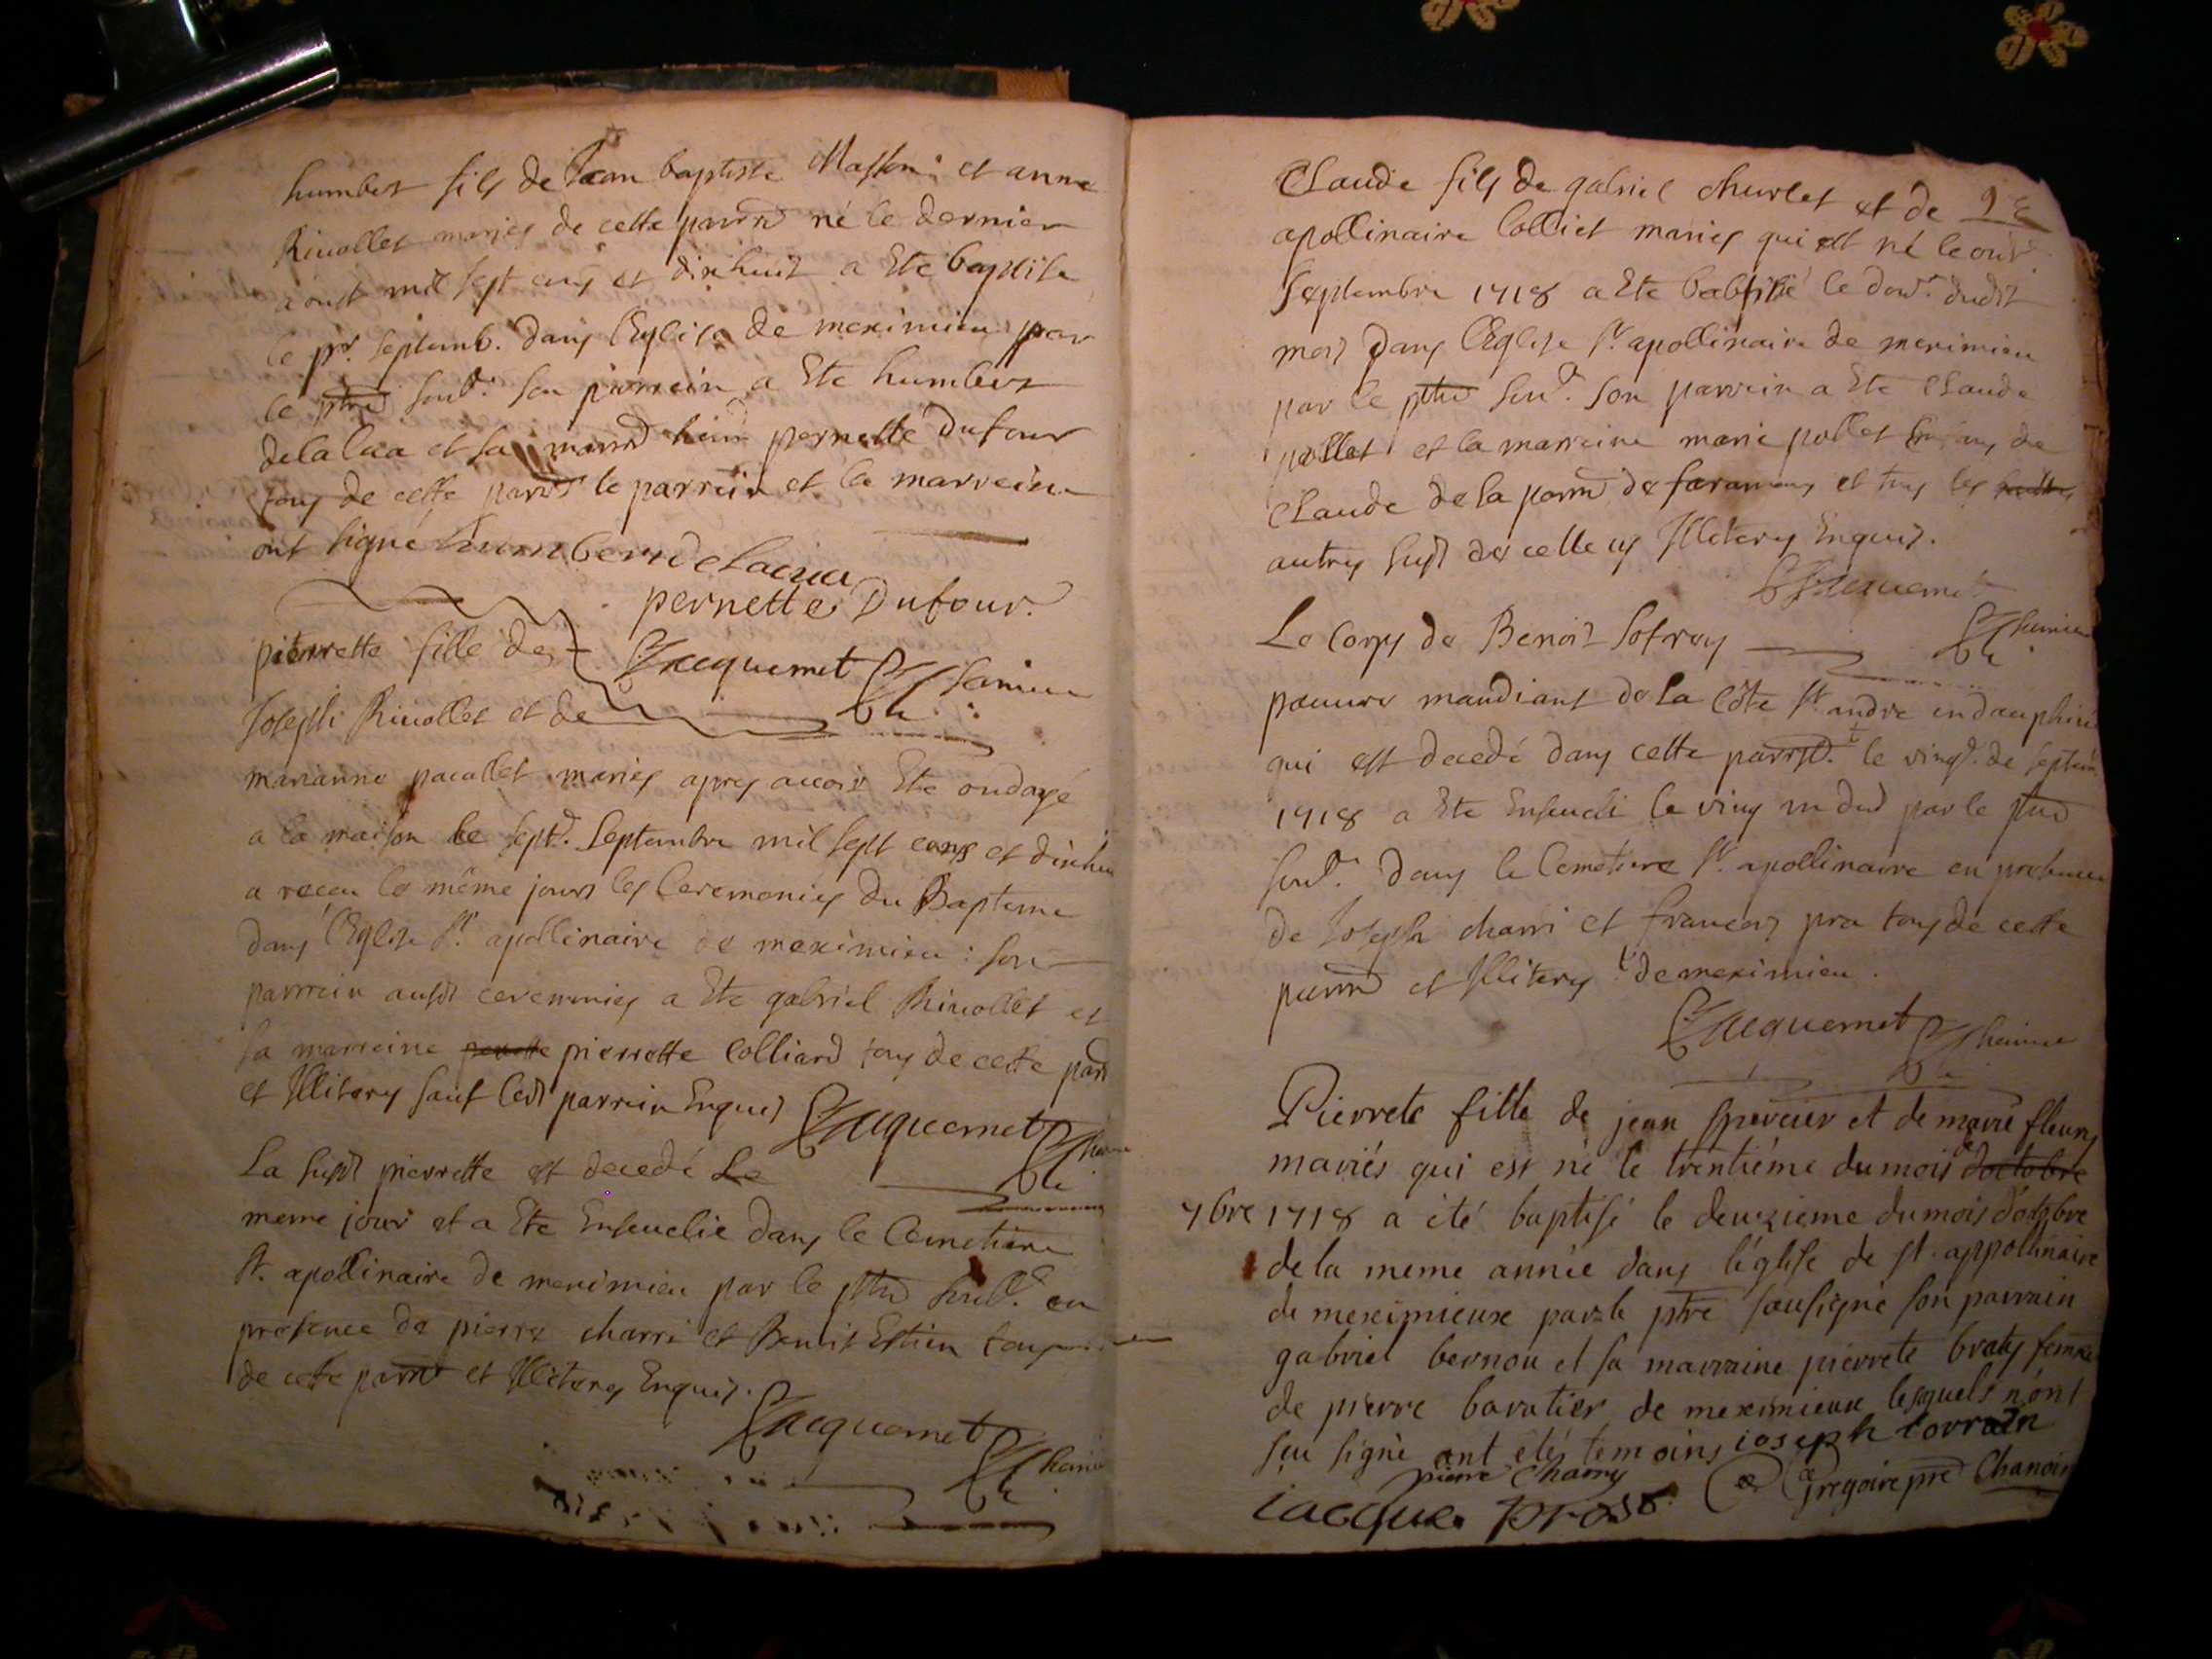 humbert fils de Jean baptiste Masson et anne
Rivollet mariés de cette parr né le dernier
aoust mil sept cens et dixhuit a Ete baptise
le pr. septemb. dans l'Eglise de meximieu par
le ptre sous. son parrein a Ete humbert
delalua et sa marr pernette Dufour
tous de cette parr le parrein et la marreine
ont signé humber delacua
pernette Dufour.
pierrette fille de
Jacquemet
Joseph Rivollet et de
marianne pacallet mariés apres avoir Ete ondoyé
a la maison le sept. Septembre mil sept cens et dixhui
a receu le même jour les Ceremonies du Bapteme
dans l'Eglise St. apollinaire de meximieu : son
parrein ausd ceremonies a Ete gabriel Rivollet et
sa marreine pierrette Colliard tous de cette parr
et Illiterés sauf led parrein Enquis Jacquemet
La susd pierrette est decedé Le
meme jour et a Ete Ensevelie dans le Cemetiere
St. apollinaire de meximieu par le ptre sous. en
presence de pierre charri et Benoit Estien tous
de cette parr et Illiterés Enquis.
Jacquemet
Claude fils de gabriel churlet et de
apollinaire Colliet mariés qui est né le onz
Septembre 1718 a Ete babtisé le douz. dudit
mois dans l'Eglise St. apollinaire de meximieu
par le ptre sous. son parrein a Ete Claude
pollet et la marreine marie pollet Enfans de
Claude de la parr de faramans et tous les
autres susd de celle cy Illiterés Enquis.
Jacquemet
Le Corps de Benoit Sofrey
pauvre mandiant de la Côte St. andré en dauphiné
qui est decedé dans cette parroiss. le vingt. de septem
1718 a Ete Enseveli le ving un dud par le ptre
sous. dans le Cemetiere St. apollinaire en presence
de Joseph charri et francois pra tous de cette
parr et Illiterés de meximieu.
Jacquemet
Pierrete fille de jean spercier et de marie fleury
mariés qui est né le trentiéme du mois de doctobre
7bre 1718 a été baptisé le deuxieme du mois d'octobre
de la meme année dans l'églife de st. appollinaire
de meximieux par le ptre sousigné son parrain
gabriel bernou et sa marraine pierrete braty femme
de pierre baratier de meximieux lesquels n'ont
seu signè ont etés temoins ioseph torrain
pierre Charry
iacque prost Gregoire pre Chanoin